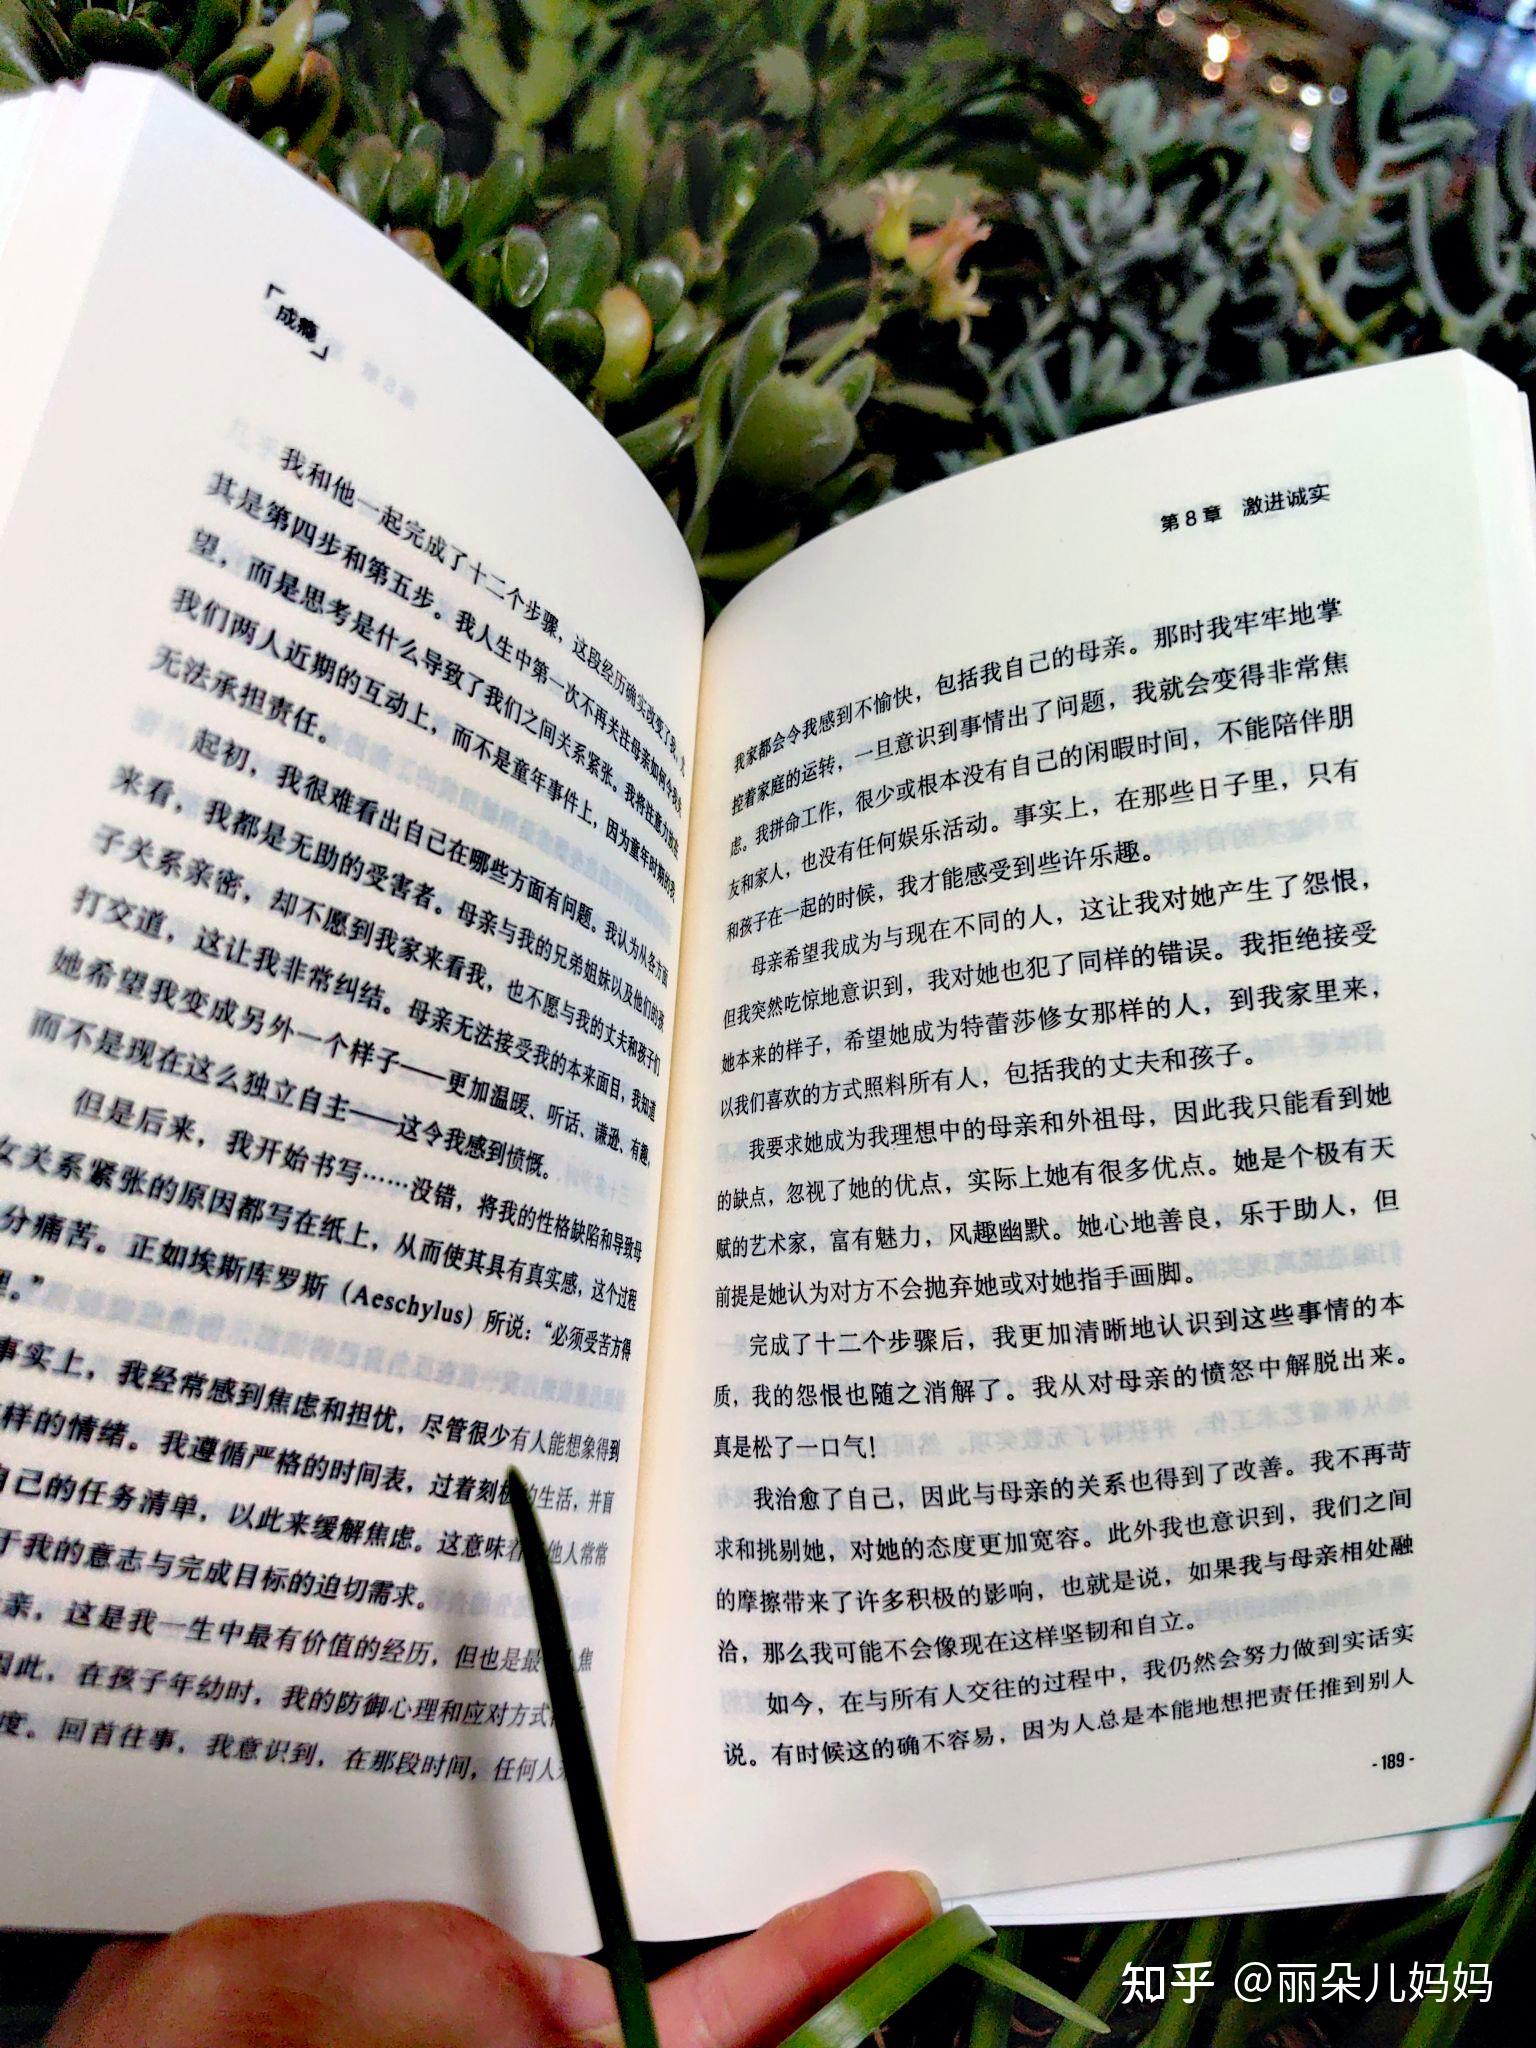 「成瘾」
我和他一起完成了十二个步骤，这段经历确实改变了我，尤
其是第四步和第五步。我人生中第一次不再关注母亲如何令我失
望，而是思考是什么导致了我们之间关系紧张。我将注意力放在
我们两人近期的互动上，而不是童年事件上，因为童年时期的我
无法承担责任。
起初，我很难看出自己在哪些方面有问题。我认为从各方面
来看，我都是无助的受害者。母亲与我的兄弟姐妹以及他们的孩
子关系亲密，却不愿到我家来看我，也不愿与我的丈夫和孩子们
打交道，这让我非常纠结。母亲无法接受我的本来面目，我知道
她希望我变成另外一个样子——更加温暖、听话、谦逊、有趣，
而不是现在这么独立自主——这令我感到愤慨。
但是后来，我开始书写……没错，将我的性格缺陷和导致母
女关系紧张的原因都写在纸上，从而使其具有真实感，这个过程
分痛苦。正如埃斯库罗斯（Aeschylus）所说：“必须受苦方得
。”
事实上，我经常感到焦虑和担忧，尽管很少有人能想象得到
样的情绪。我遵循严格的时间表，过着刻板的生活，并盲
自己的任务清单，以此来缓解焦虑。这意味着他人常常
于我的意志与完成目标的迫切需求。
亲，这是我一生中最有价值的经历，但也是最 焦
因此，在孩子年幼时，我的防御心理和应对方式
度。回首往事，我意识到，在那段时间，任何人
第8章 激进诚实
我家都会令我感到不愉快，包括我自己的母亲。那时我牢牢地掌
控着家庭的运转，一旦意识到事情出了问题，我就会变得非常焦
虑。我拼命工作，很少或根本没有自己的闲暇时间，不能陪伴朋
友和家人，也没有任何娱乐活动。事实上，在那些日子里，只有
和孩子在一起的时候，我才能感受到些许乐趣。
母亲希望我成为与现在不同的人，这让我对她产生了怨恨，
但我突然吃惊地意识到，我对她也犯了同样的错误。我拒绝接受
她本来的样子，希望她成为特蕾莎修女那样的人，到我家里来，
以我们喜欢的方式照料所有人，包括我的丈夫和孩子。
我要求她成为我理想中的母亲和外祖母，因此我只能看到她
的缺点，忽视了她的优点，实际上她有很多优点。她是个极有天
赋的艺术家，富有魅力，风趣幽默。她心地善良，乐于助人，但
前提是她认为对方不会抛弃她或对她指手画脚。
完成了十二个步骤后，我更加清晰地认识到这些事情的本
质，我的怨恨也随之消解了。我从对母亲的愤怒中解脱出来。
真是松了一口气！
我治愈了自己，因此与母亲的关系也得到了改善。我不再苛
求和挑剔她，对她的态度更加宽容。此外我也意识到，我们之间
的摩擦带来了许多积极的影响，也就是说，如果我与母亲相处融
洽，那么我可能不会像现在这样坚韧和自立。
如今，在与所有人交往的过程中，我仍然会努力做到实话实
说。有时候这的确不容易，因为人总是本能地想把责任推到别人
- 189 -
知乎 @丽朵儿妈妈